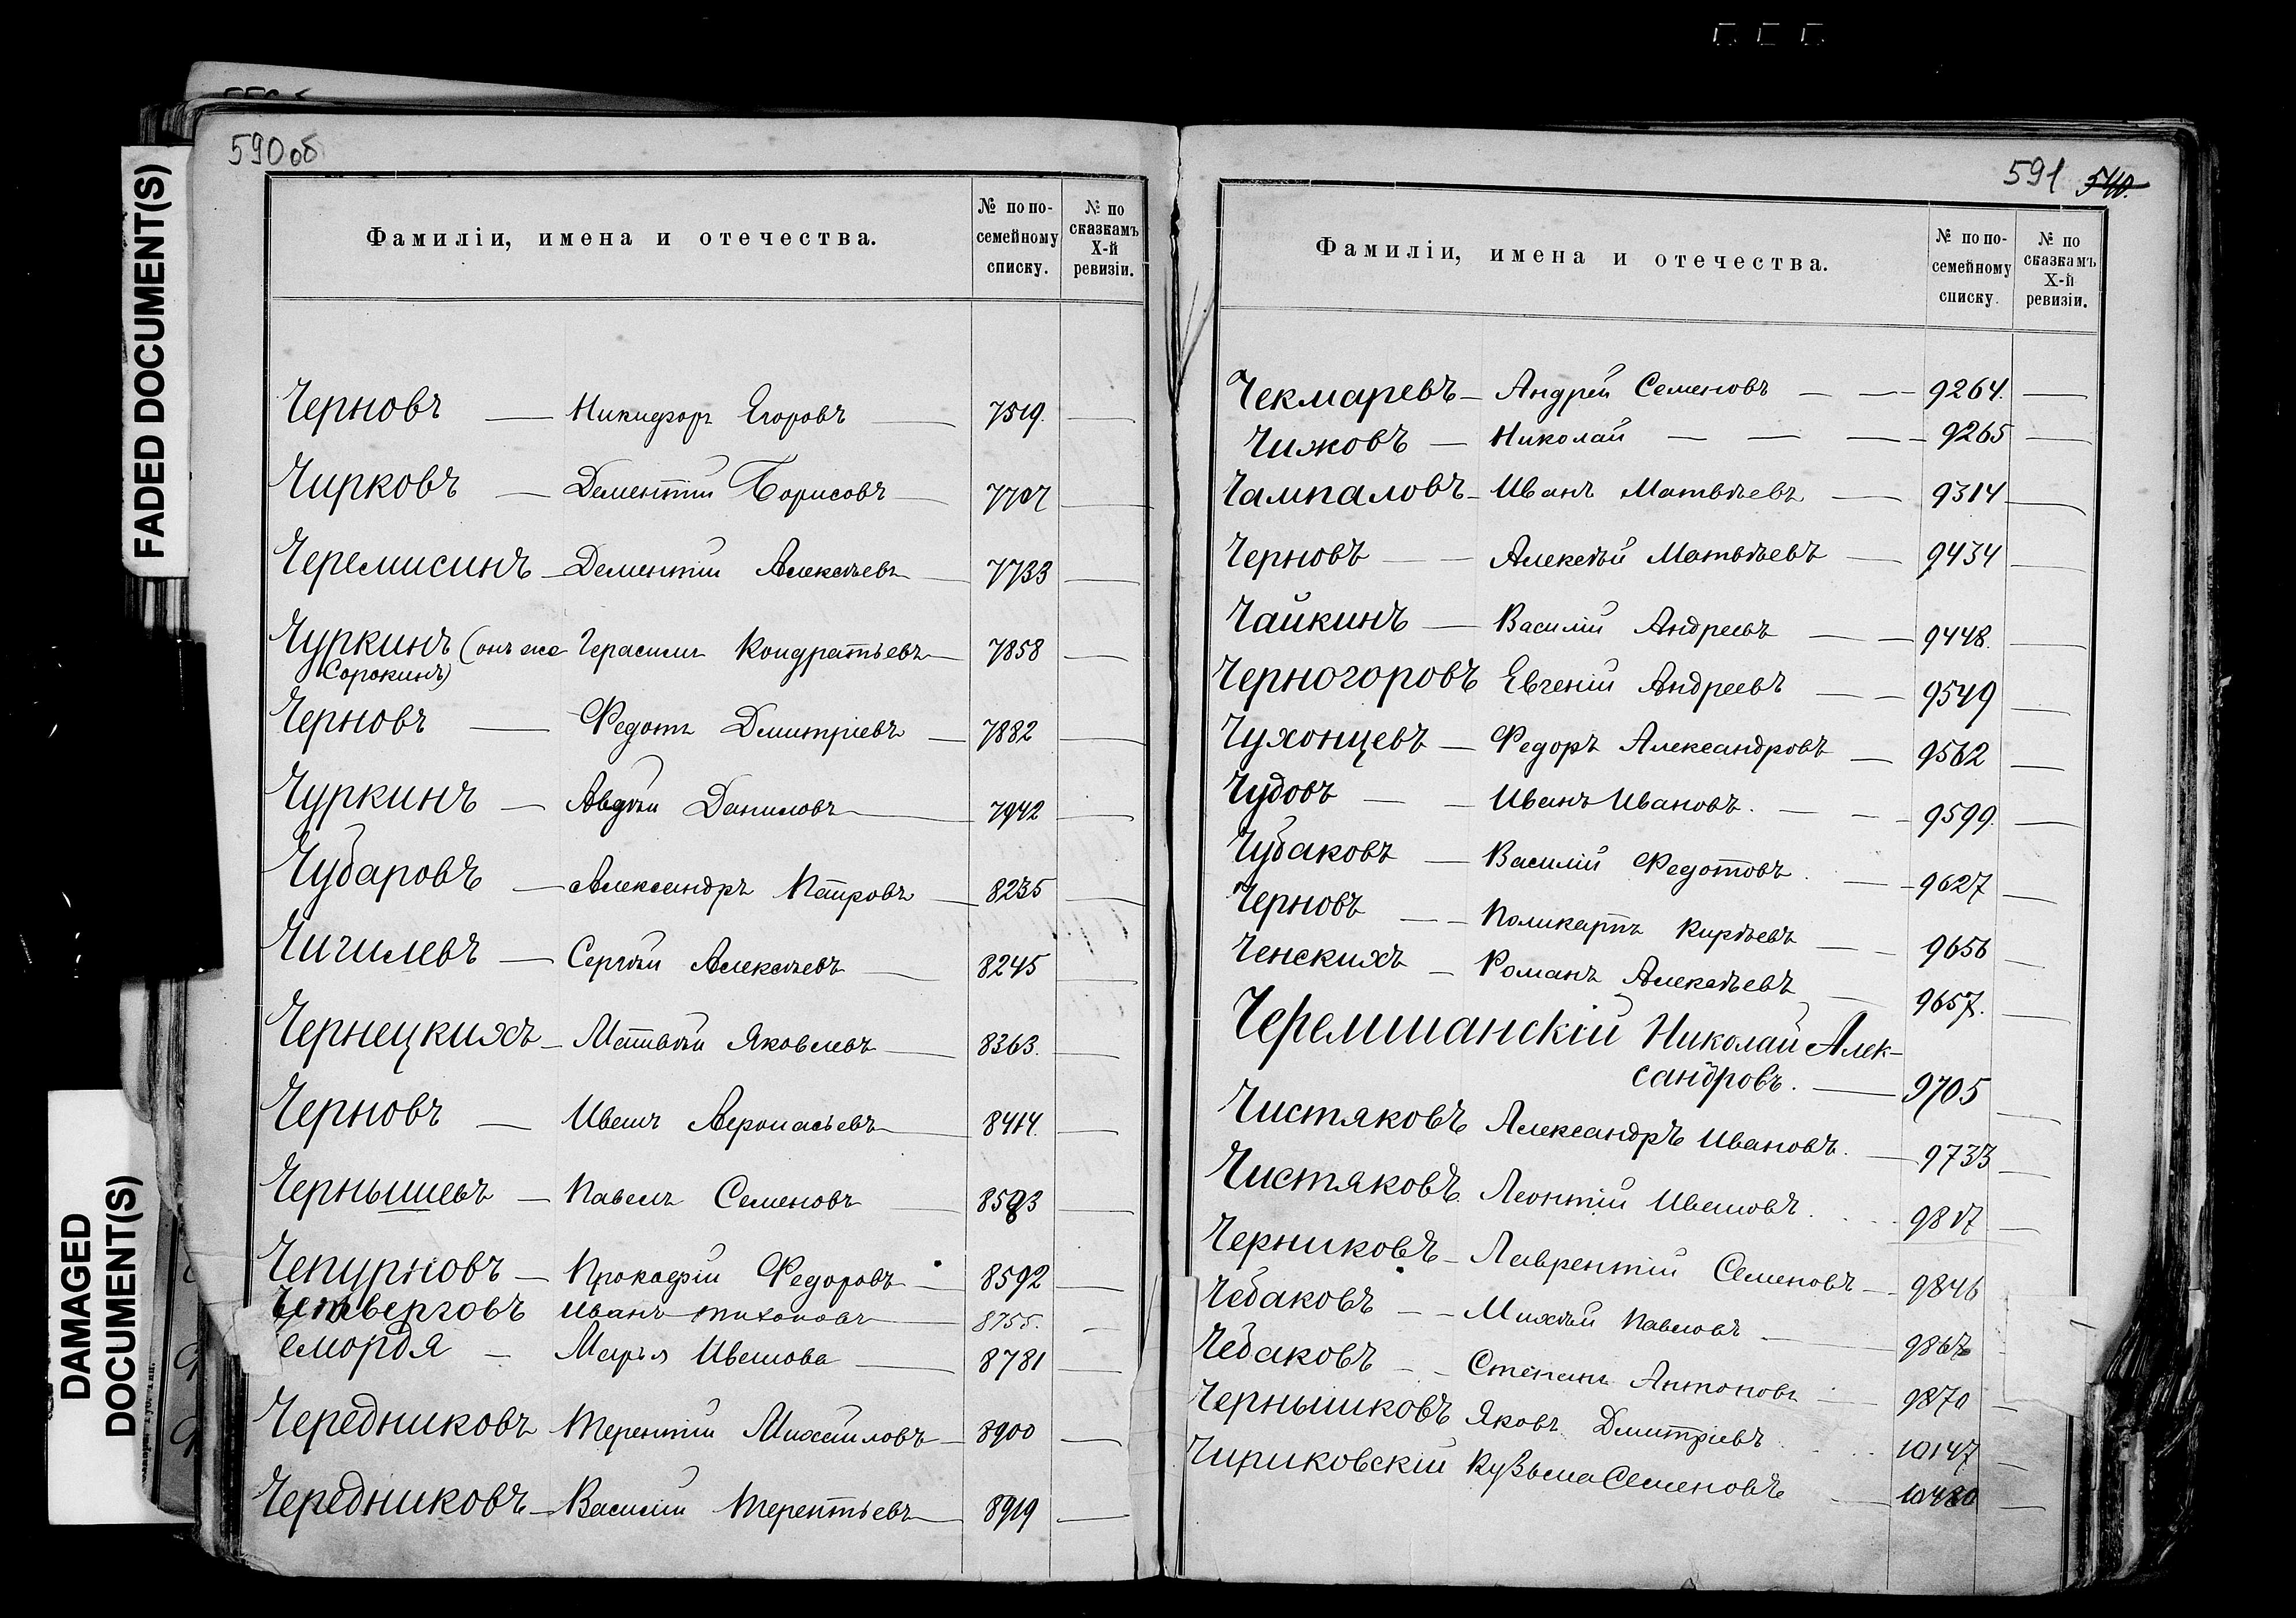 FADED DOCUMENT(S)
DAMAGED
DOCUMENT(S)
590об
Фамиліи, имена и отечества.
№ по по-
семейному
списку.
№ по
сказкамъ
X-й
ревизіи.
Черновъ — Никифоръ Егоровъ — 7519. —
Чирковъ — Дементій Борисовъ — 7707 —
Черемисинъ — Дементій Алексѣевъ — 7733 —
Чуркинъ (онъ же Герасимъ Кондратьевъ — 7858 —
Сорокинъ)
Черновъ — Федотъ Дмитріевъ — 7882 —
Чуркинъ — Авдѣй Даниловъ — 7942 —
Чубаровъ — Александръ Петровъ — 8235 —
Чигилевъ — Сергѣй Алексѣевъ — 8245 —
Чернецкихъ — Матвѣй Яковлевъ — 8363. —
Черновъ — Иванъ Афонасьевъ — 8414. —
Чернышевъ — Павелъ Семеновъ — 8593 —
Чепурновъ — Прокофій Федоровъ — 8592 —
Четверговъ Иванъ Тихоновъ — 8755. —
емордя — Марья Иванова — 8781 —
Чередниковъ Терентій Михайловъ — 8900 —
Чередниковъ — Василій Терентьевъ — 8919 —
591 540.
Фамиліи, имена и отечества.
№ по по-
семейному
списку.
№ по
сказкамъ
X-й
ревизіи.
Чекмаревъ — Андрей Семеновъ — — 9264. —
Чижовъ — Николай — — — 9265 —
Чампаловъ — Иванъ Матвѣевъ — 9314 —
Черновъ — — Алексѣй Матвѣевъ — 9434 —
Чайкинъ — Василій Андреевъ — — 9448. —
Черногоровъ Евгеній Андреевъ — — 9549 —
Чухонцевъ — Федоръ Александровъ — 9562 —
Чудовъ — — Иванъ Ивановъ. — — 9599. —
Чубаковъ — Василій Федотовъ. — 9627 —
Черновъ — — Поликарпъ Кирѣевъ — 9656 —
Ченскихъ — Романъ Алексѣевъ — 9657. —
Черемшанскій Николай Алек-
сандровъ. — 9705 —
Чистяковъ Александръ Ивановъ. — 9733 —
Чистяковъ. Леонтій Ивановъ. 9817 —
Черниковъ — Лаврентій Семеновъ — 9846
Чебаковъ — — Михѣй Павловъ — 9867
Чебаковъ — — Степанъ Антоновъ — 9870 —
Чернышковъ Яковъ Дмитріевъ . . . 10147 —
Чириковскій Кузьма Семеновъ — 10480 —